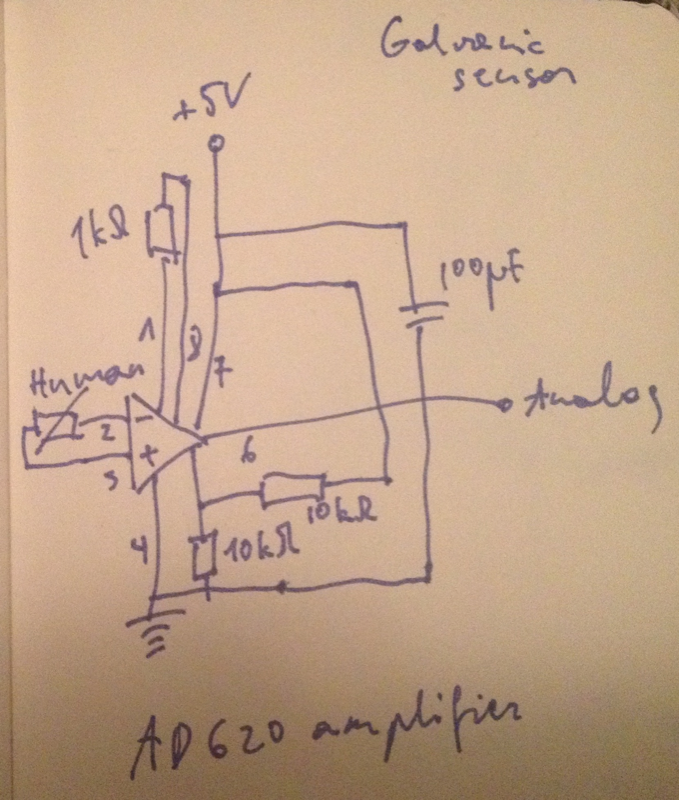 Galvanic
sensor
+5V
1kΩ
100µF
1
8
7
Human
Analog
-
2
+
3
6
10kΩ
4
10kΩ
AD620 amplifier